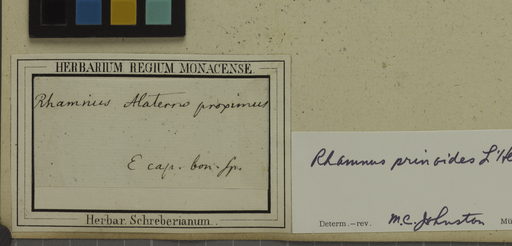 HERBARIUM REGIUM MONACENSE.
Rhamnus Alaterno proximus
E cap. bon. Sp.
Herbar. Schreberianum.
Rhamnus prinoides L'He
Determ.-rev. M.C. Johnston Mü